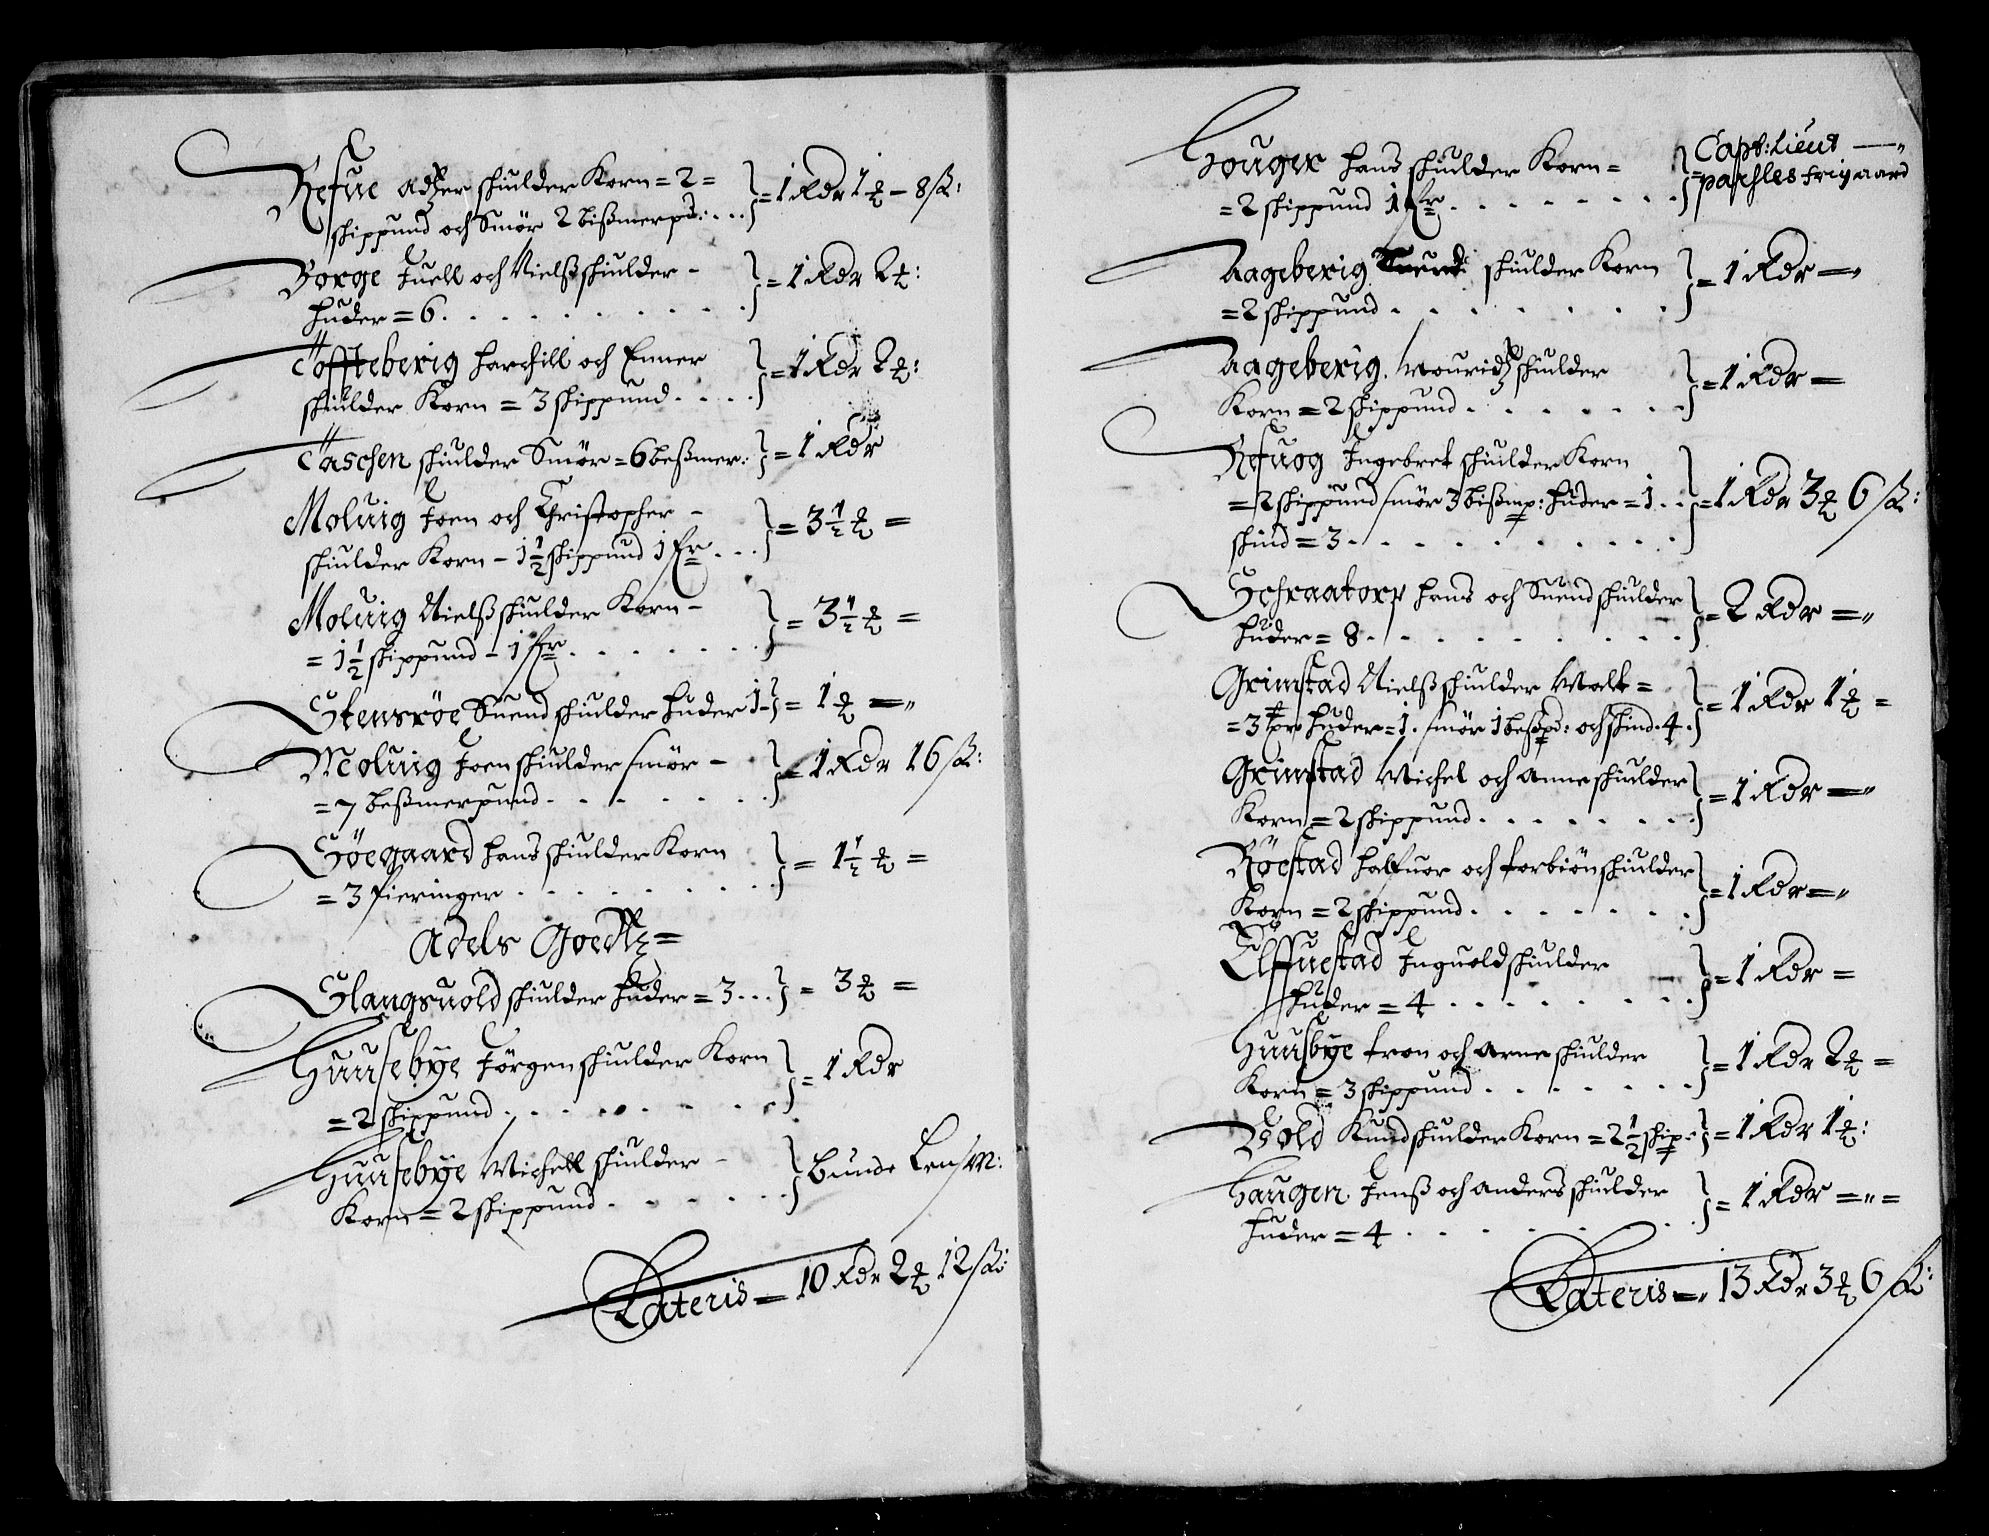 Refue Adzer schiulder Korn = 2 =
schippund och Smör 2 bißmerpd: . . . } = 1 Rdr 1 ₻ – 8 ß:
Borge Juell och Nielß schiulder –
huder = 6 . . . . } = 1 Rdr 2 ₻:
Toffteberig harchill och Enner
schiulder Korn = 3 schippund . . . . } = 1 Rdr 2 ₻:
Taschen schiulder Smör = 6 beßmer: } = 1 Rdr
Moluig Joen och Christopher –
schiulder Korn – 1½ schippund 1 fr . . . } = 3½ ₻ =
Moluig Nielß schiulder Korn –
= 1½ schippund – 1 fr . . . . } = 3½ ₻ =
Stensröe Suend schiulder huder 1 – } = 1 ₻ =
Moluig Joen schiulder smör –
= 7 beßmerpund . . . . } = 1 Rdr 16 ß:
Söegaard hans schiulder Korn
= 3 fieringer . . . . } = 1½ ₻ =
Adels Goedtz =
Slangsuold schiulder huder = 3 . . . } = 3 ₻ =
Huusebye Jörgen schiulder Korn
= 2 schippund . . . . } = 1 Rdr
Huusebye Michell schiulder –
Korn = 2 schippund . . . . } bunde Lensm:
Lateris = 10 Rdr 2 ₻ 12 ß:
Houger hans schiulder Korn =
= 2 schippund 1 fr . . . . } = Capt: Lieut —
parsles frigaard
Aageberig schiulder Korn
= 2 schippund . . . . } = 1 Rdr =
Aageberig Mouridz schiulder
Korn = 2 schippund . . . . } = 1 Rdr =
Refuog Ingebret schiulder Korn
= 2 schippund smör 3 bißmp: huder = 1 . .
schind = 3 . . . . } = 1 Rdr 3 ₻ 6 ß:
Schraatorp hans och Suend schiulder
huder = 8 . . . . } = 2 Rdr =
Grimstad Nielß schiulder Malt =
= 3 huder = 1. smör 1 beßpd: och schind . 4 . } = 1 Rdr 1 ₻ =
Grimstad Michel och Anne schiulder
Korn = 2 schippund . . . . } = 1 Rdr =
Röestad halfuor och torbiön schiulder
Korn = 2 schippund . . . . } = 1 Rdr =
Elffuestad Inguold schiulder
huder = 4 . . . . } = 1 Rdr =
Huusbye tron och Arne schiulder
Korn = 3 schippund . . . . } = 1 Rdr 2 ₻ =
Vold Knud schiulder Korn = 2½ schip: } = 1 Rdr 1 ₻:
Haugen Jenß och anders schiulder
huder = 4 . . . . } = 1 Rdr = =
Lateris = 13 Rdr 3 ₻ 6 ß: